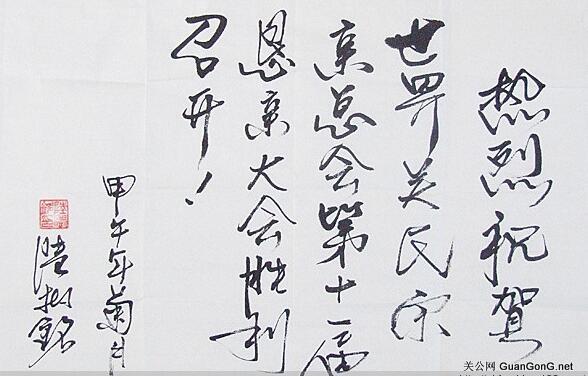 热烈祝贺
世界关氏宗
亲总会第十一届
恳亲大会胜利
召开！
甲午年菊月
陸树銘
关公网 GuanGonG.neT